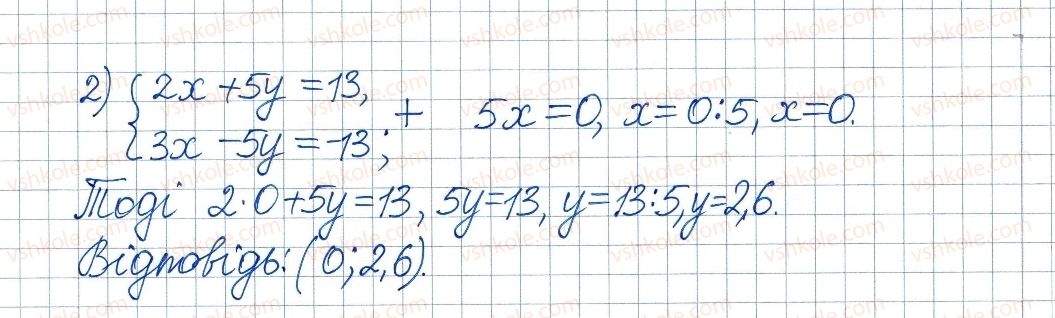 2) { 2x + 5y = 13,
3x - 5y = -13; + 5x = 0, x = 0:5, x = 0.
Тоді 2·0 + 5y = 13, 5y = 13, y = 13:5, y = 2,6.
Відповідь: (0; 2,6).